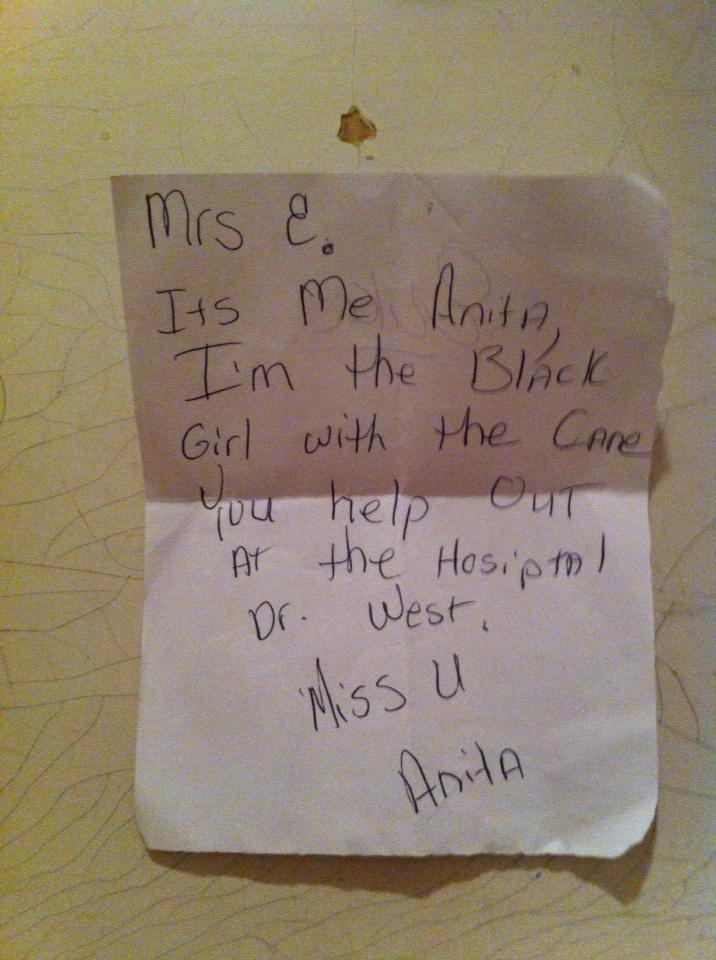 Mrs E.
Its Me Anita,
I'm the Black
Girl with the Cane
You help OuT
At the Hosiptal
Dr. West.
Miss U
Anita